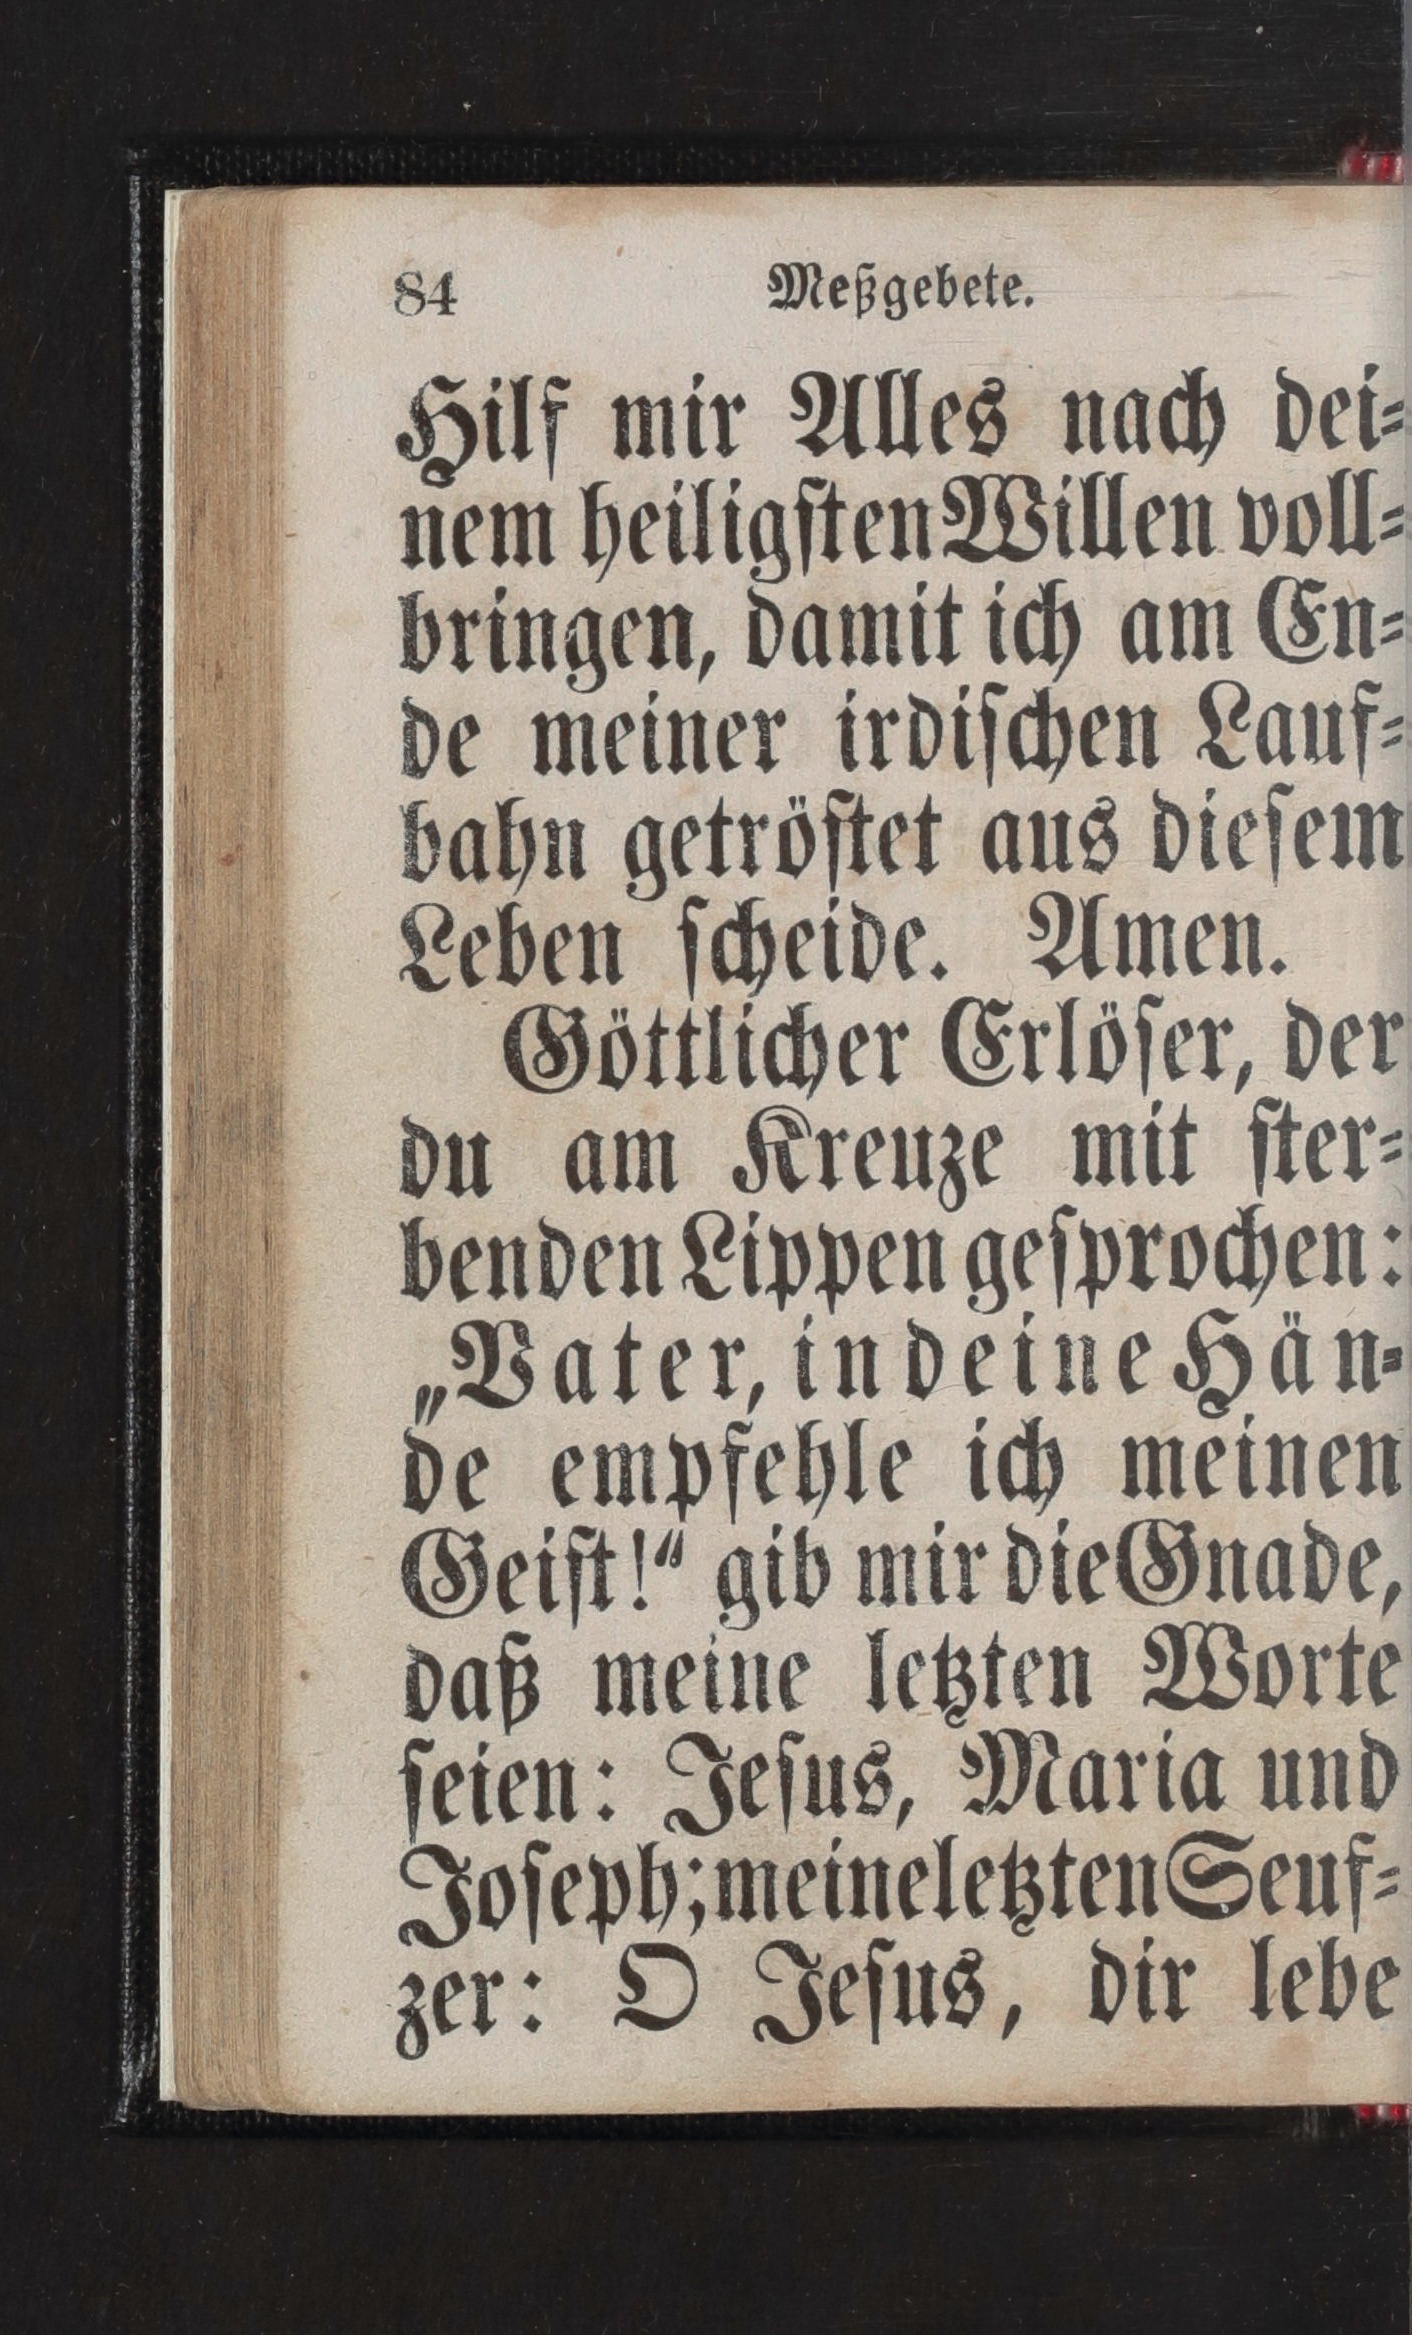 84 Meßgebete.
Hilf mir Alles nach dei-
nem heiligsten Willen voll-
bringen, damit ich am En-
de meiner irdischen Lauf-
bahn getröstet aus diesem
Leben scheide. Amen.
Göttlicher Erlöser, der
du am Kreuze mit ster-
benden Lippen gesprochen:
„Vater, in deine Hän-
de empfehle ich meinen
Geist!“ gib mir die Gnade,
daß meine letzten Worte
seien: Jesus, Maria und
Joseph; meine letzten Seuf-
zer: O Jesus, dir lebe